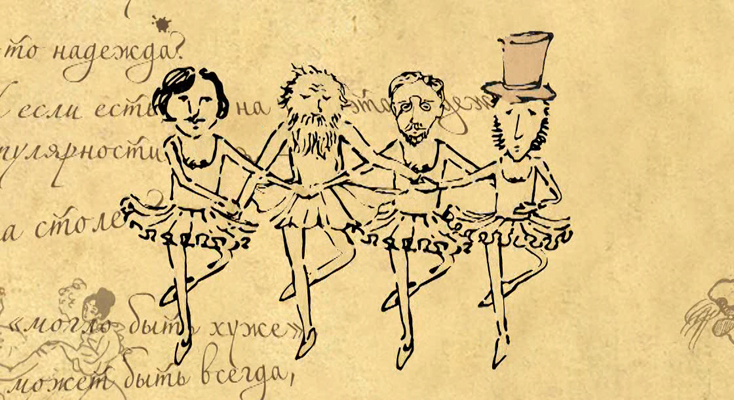 то надежда?
если есть на эта
пулярности
а столе
«могло быть хуже»
может быть всегда,